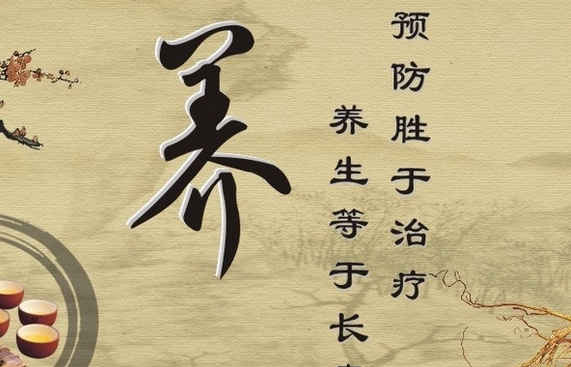 养
预防胜于治疗
养生等于长